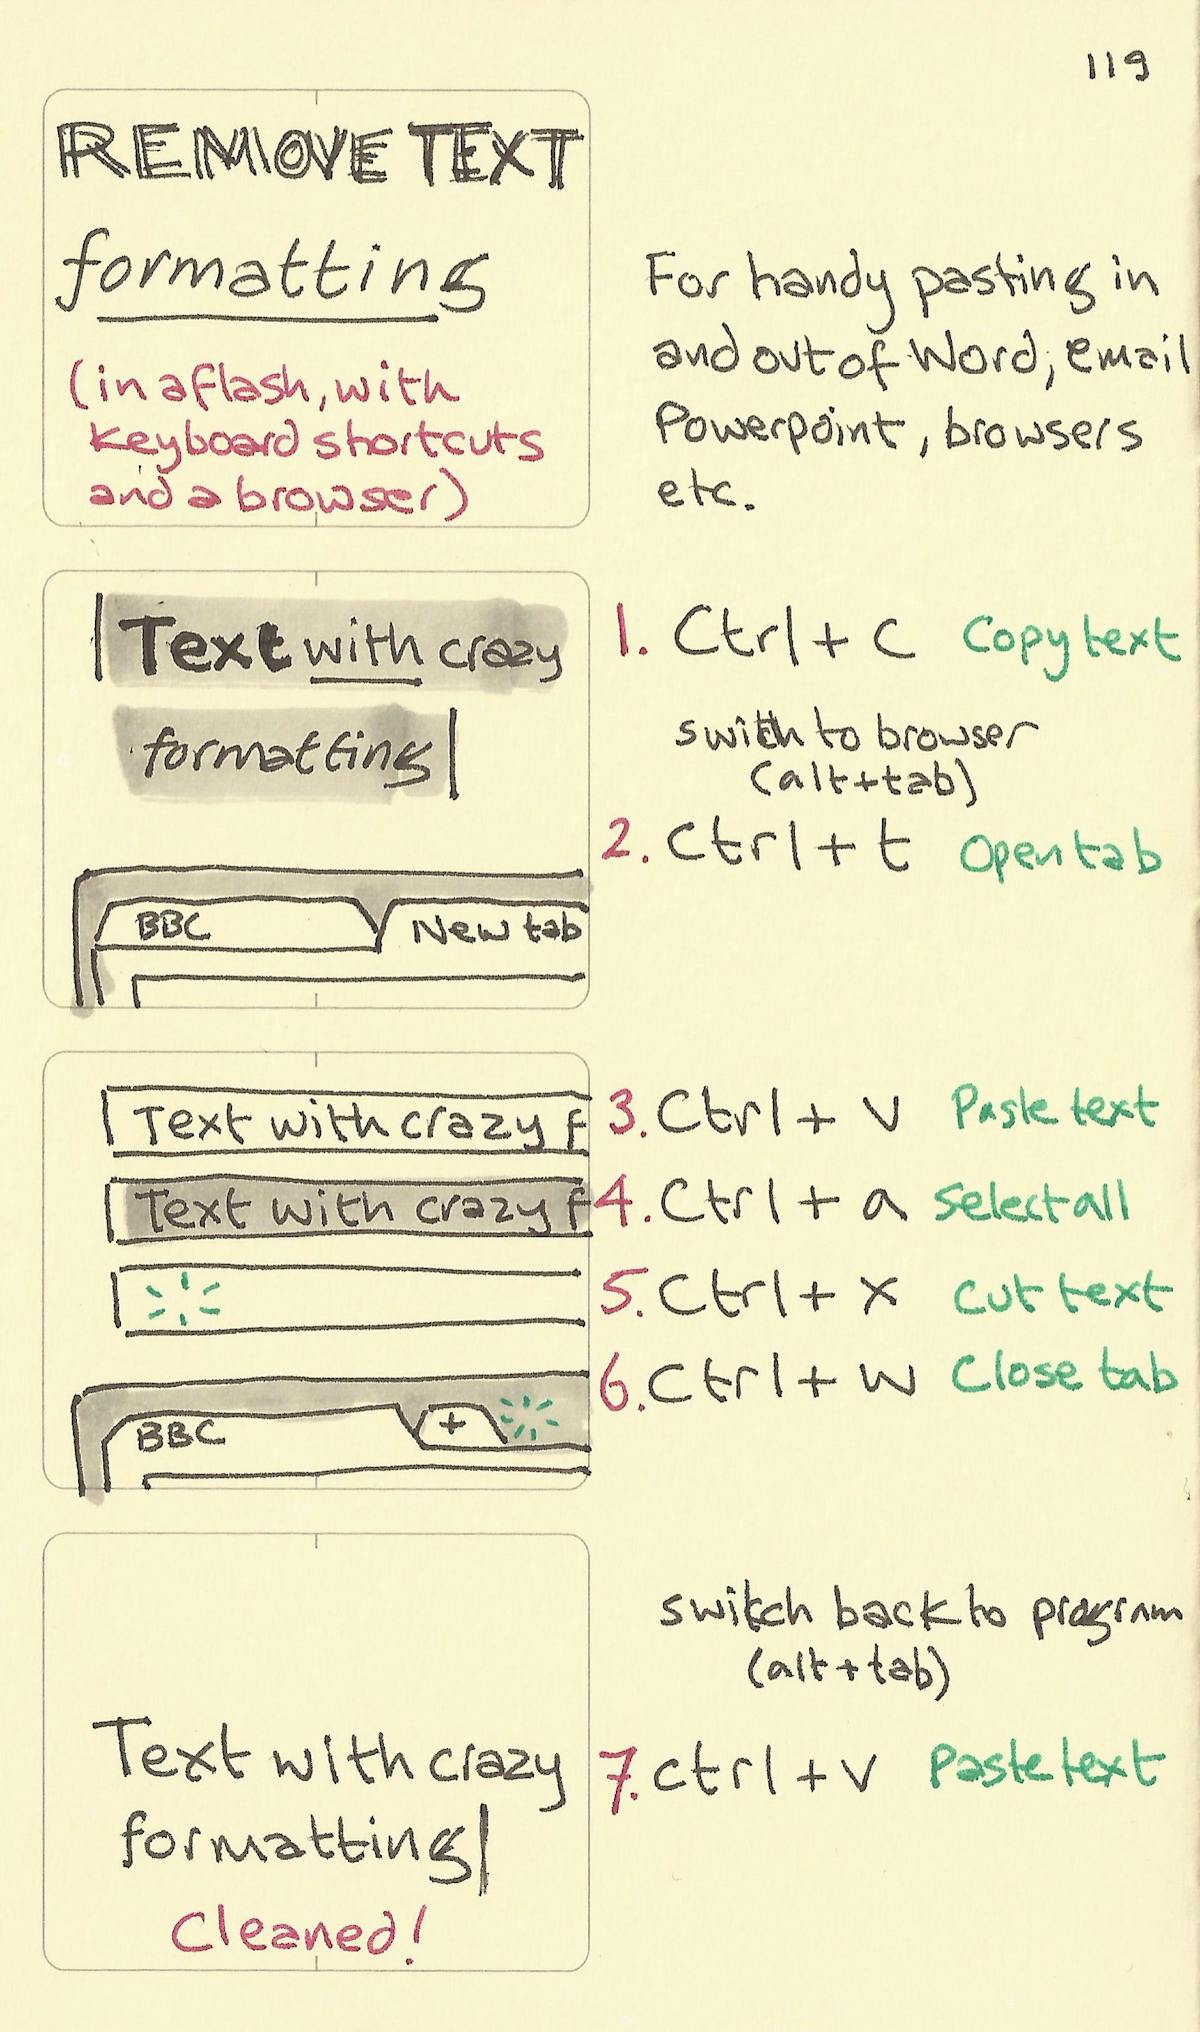 119
REMOVE TEXT
formatting
(in a flash, with
keyboard shortcuts
and a browser)
For handy pasting in
and out of Word, email
Powerpoint, browsers
etc.
Text with crazy
formatting
1. Ctrl + c Copy text
switch to browser
(alt+tab)
2. Ctrl + t Open tab
BBC New tab
Text with crazy f
3. Ctrl + v Paste text
Text with crazy f
4. Ctrl + a Select all
5. Ctrl + x cut text
6. Ctrl + w Close tab
BBC +
switch back to program
(alt+tab)
Text with crazy
formatting
Cleaned!
7. ctrl + v Paste text